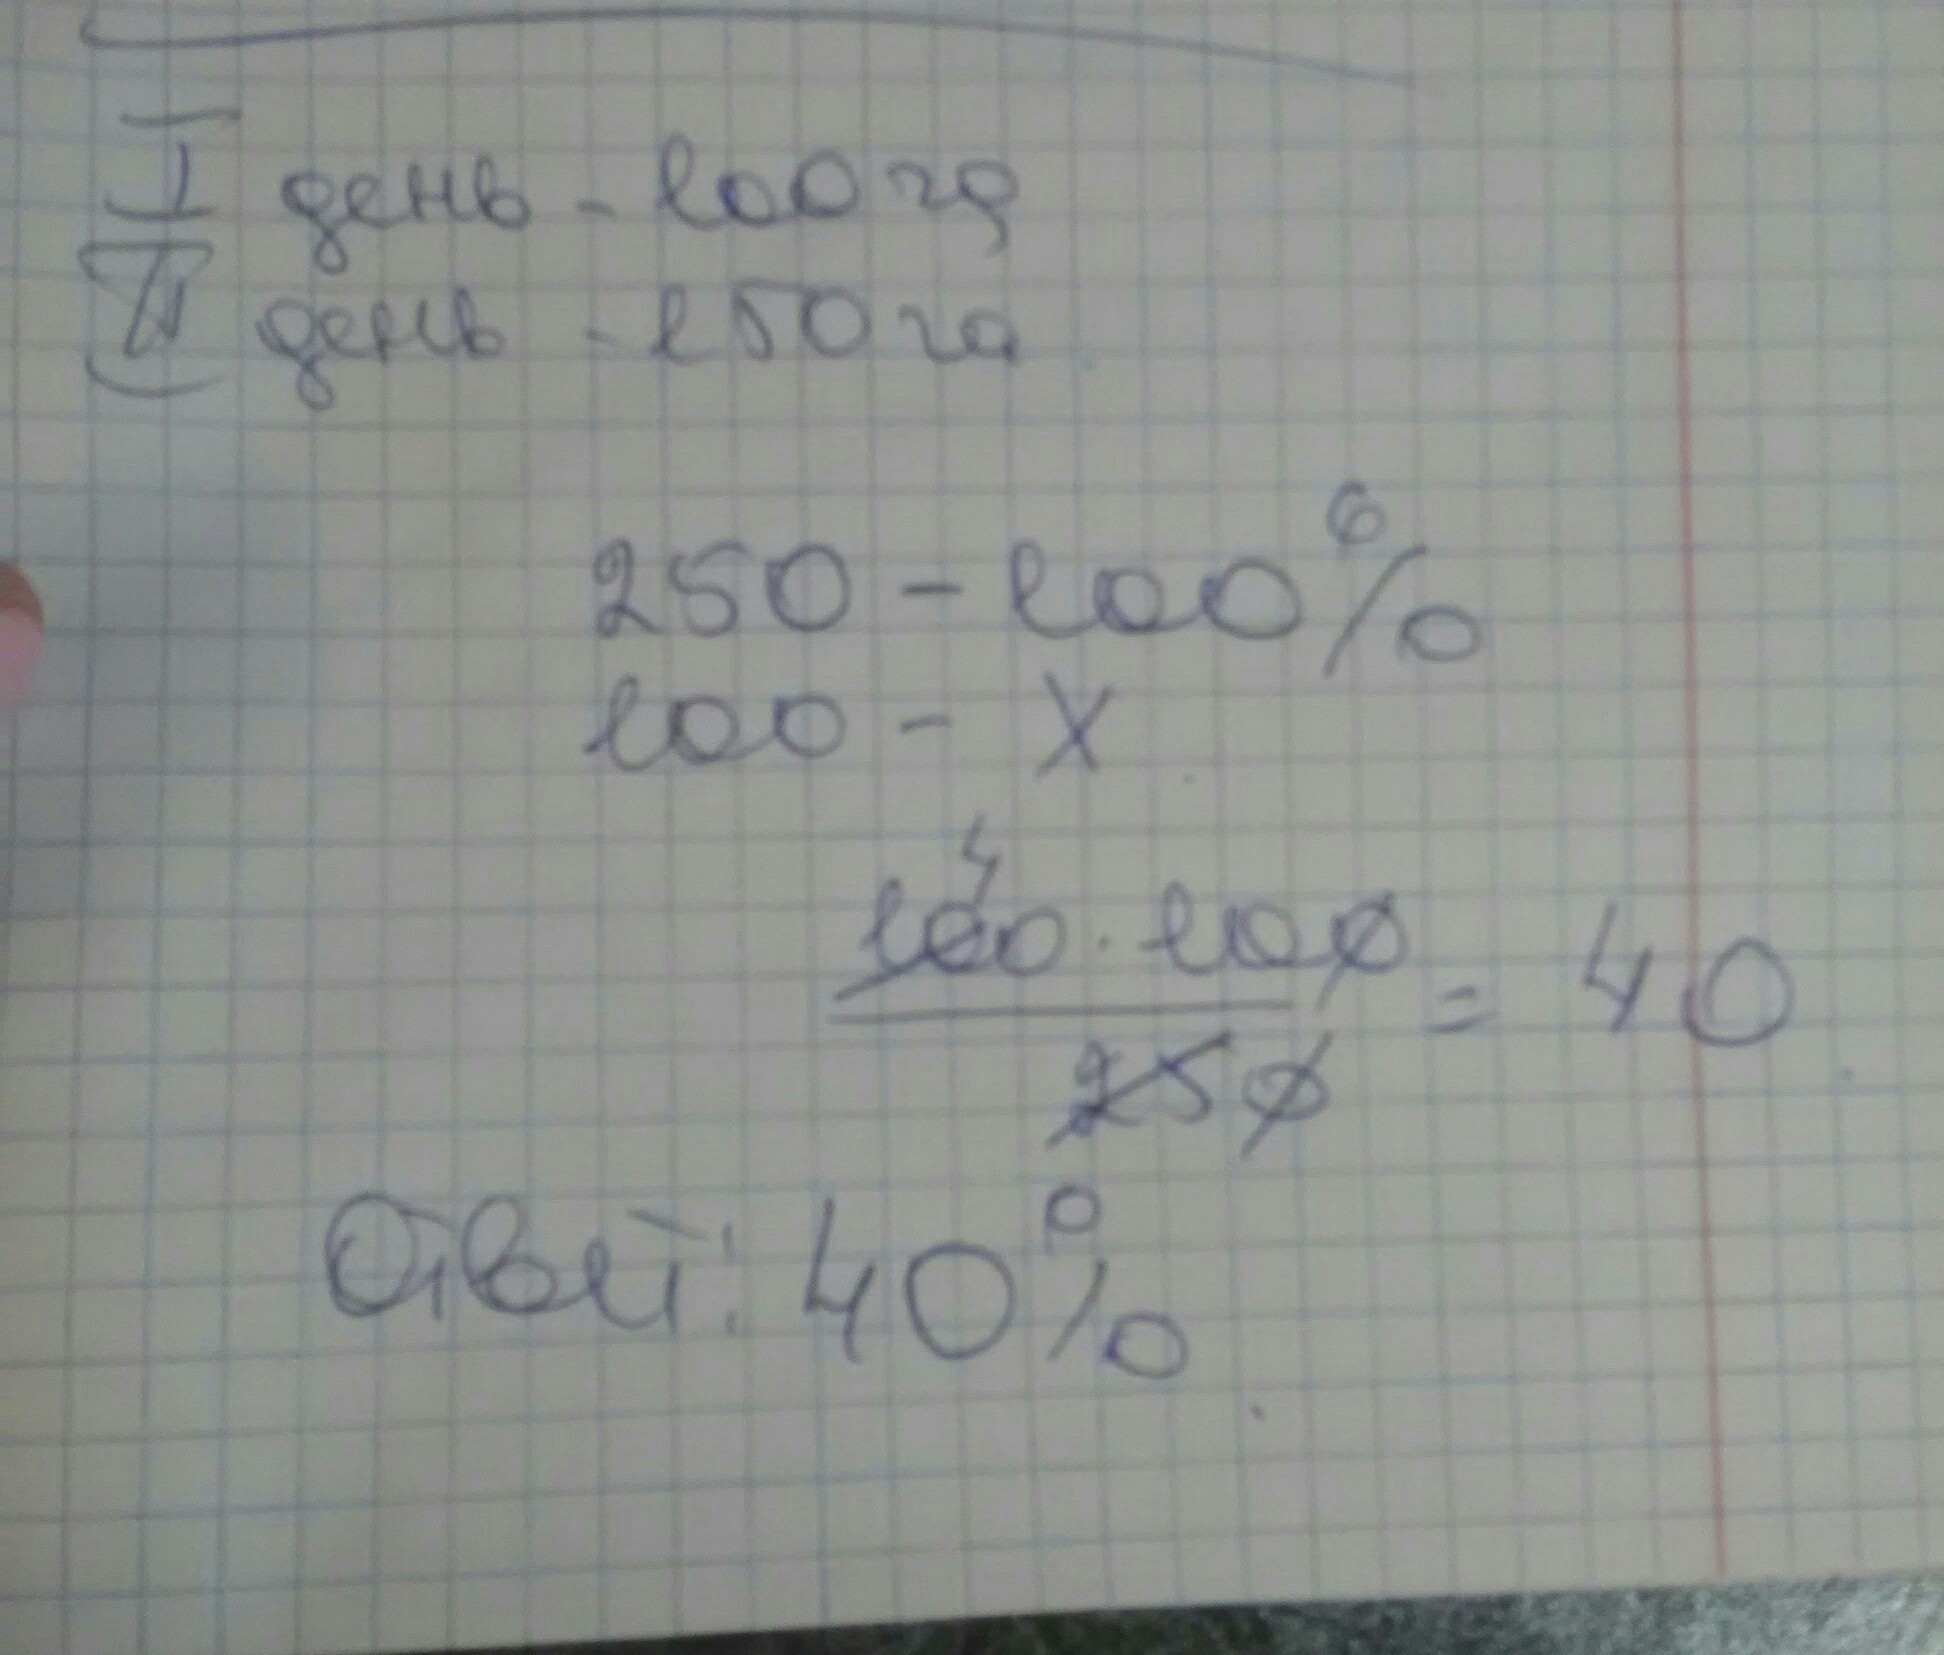 I день - 100 га
II день - 150 га
250 - 100%
100 - х
4
100 · 100
= 40
250
Ответ: 40%